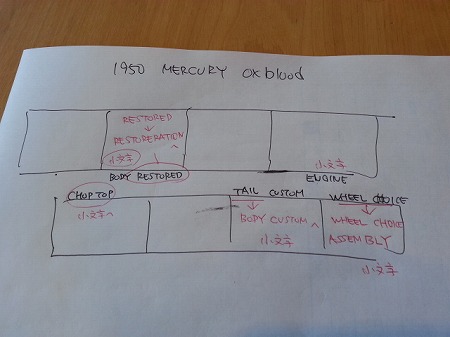 1950 MERCURY OXblood
RESTORED
RESTORERATION
へ
小文字
BODY RESTORED
小文字
ENGINE
CHOP TOP
小文字へ
TAIL CUSTOM
BODY CUSTOM へ
小文字
WHEEL CHOICE
WHEEL CHOICE
ASSEMBLY
小文字